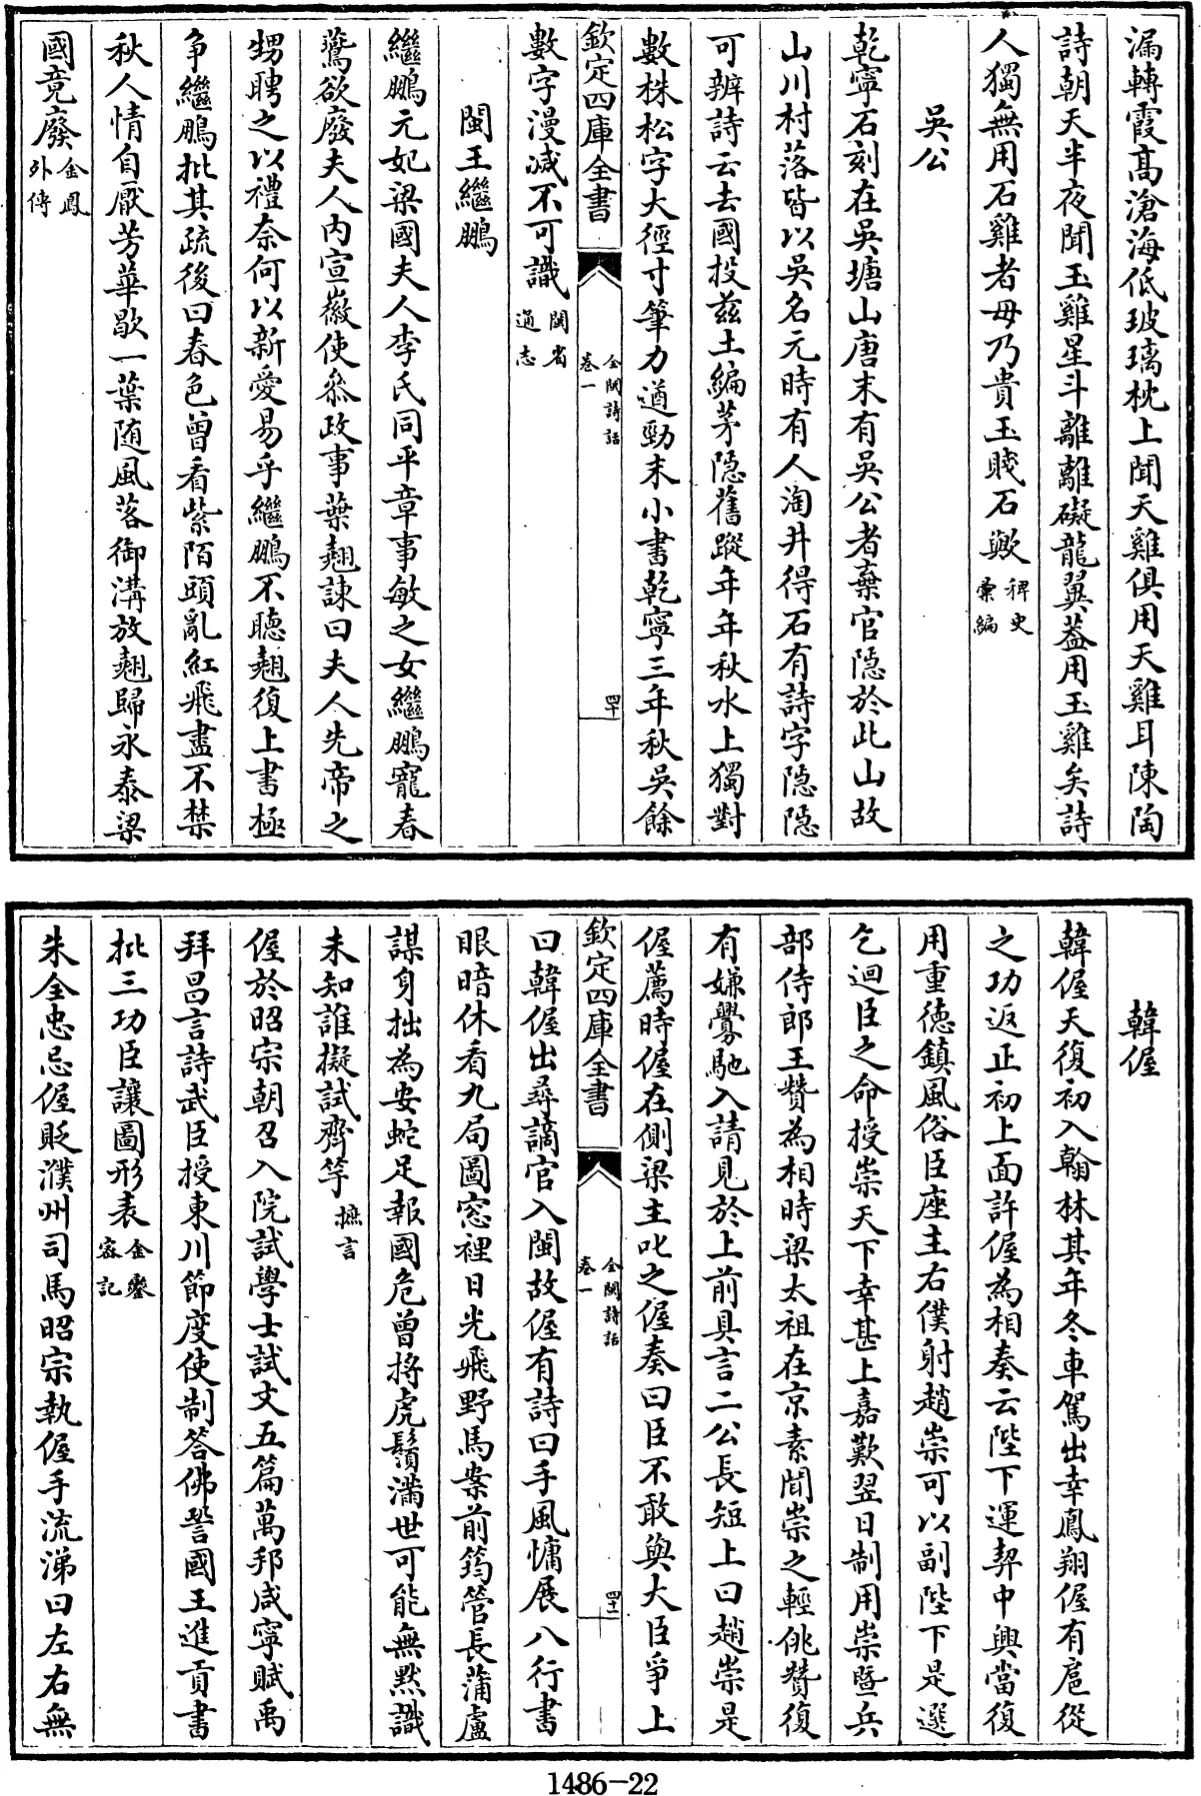 漏轉霞高滄海低玻璃枕上聞天雞俱用天雞耳陳陶
詩朝天半夜聞玉雞星斗離離礙龍翼葢用玉雞矣詩
人獨無用石雞者毋乃貴玉賤石歟稗史彙編
吳公
乾寧石刻在吳塘山唐末有吳公者棄官隱於此山故
山川村落皆以吳名元時有人淘井得石有詩字隱隱
可辨詩云去國投兹土編茅隱舊蹤年年秋水上獨對
數株松字大徑寸筆力遒勁末小書乾寧三年秋吳餘
欽定四庫全書 全閩詩話 卷一 四十
數字漫滅不可識閩省通志
閩王繼鵬
繼鵬元妃梁國夫人李氏同平章事敏之女繼鵬寵春
鷰欲廢夫人内宣徽使叅政事葉翹諫曰夫人先帝之
甥聘之以禮奈何以新愛易乎繼鵬不聽翹復上書極
争繼鵬批其疏後曰春色曾看紫陌頭亂紅飛盡不禁
秋人情自厭芳華歇一葉随風落御溝放翹歸永泰梁
國竟廢金鳳外傳
韓偓
韓偓天復初入翰林其年冬車駕出幸鳳翔偓有扈從
之功返正初上面許偓為相奏云陛下運契中興當復
用重德鎮風俗臣座主右僕射趙崇可以副陛下是選
乞迴臣之命授崇天下幸甚上嘉歎翌日制用崇暨兵
部侍郎王贊為相時梁太祖在京素聞崇之輕佻贊復
有嫌釁馳入請見於上前具言二公長短上曰趙崇是
偓薦時偓在側梁主叱之偓奏曰臣不敢與大臣爭上
欽定四庫全書 全閩詩話 卷一 四十一
曰韓偓出尋謫官入閩故偓有詩曰手風慵展八行書
眼暗休看九局圖窓裡日光飛野馬案前筠管長蒲盧
謀身拙為安蛇足報國危曾捋虎鬚滿世可能無黙識
未知誰擬試齊竽摭言
偓於昭宗朝召入院試學士試文五篇萬邦咸寧賦禹
拜昌言詩武臣授東川節度使制答佛詧國王進貢書
批三功臣讓圖形表金鑾密記
朱全忠忌偓貶濮州司馬昭宗執偓手流涕曰左右無
1486-22